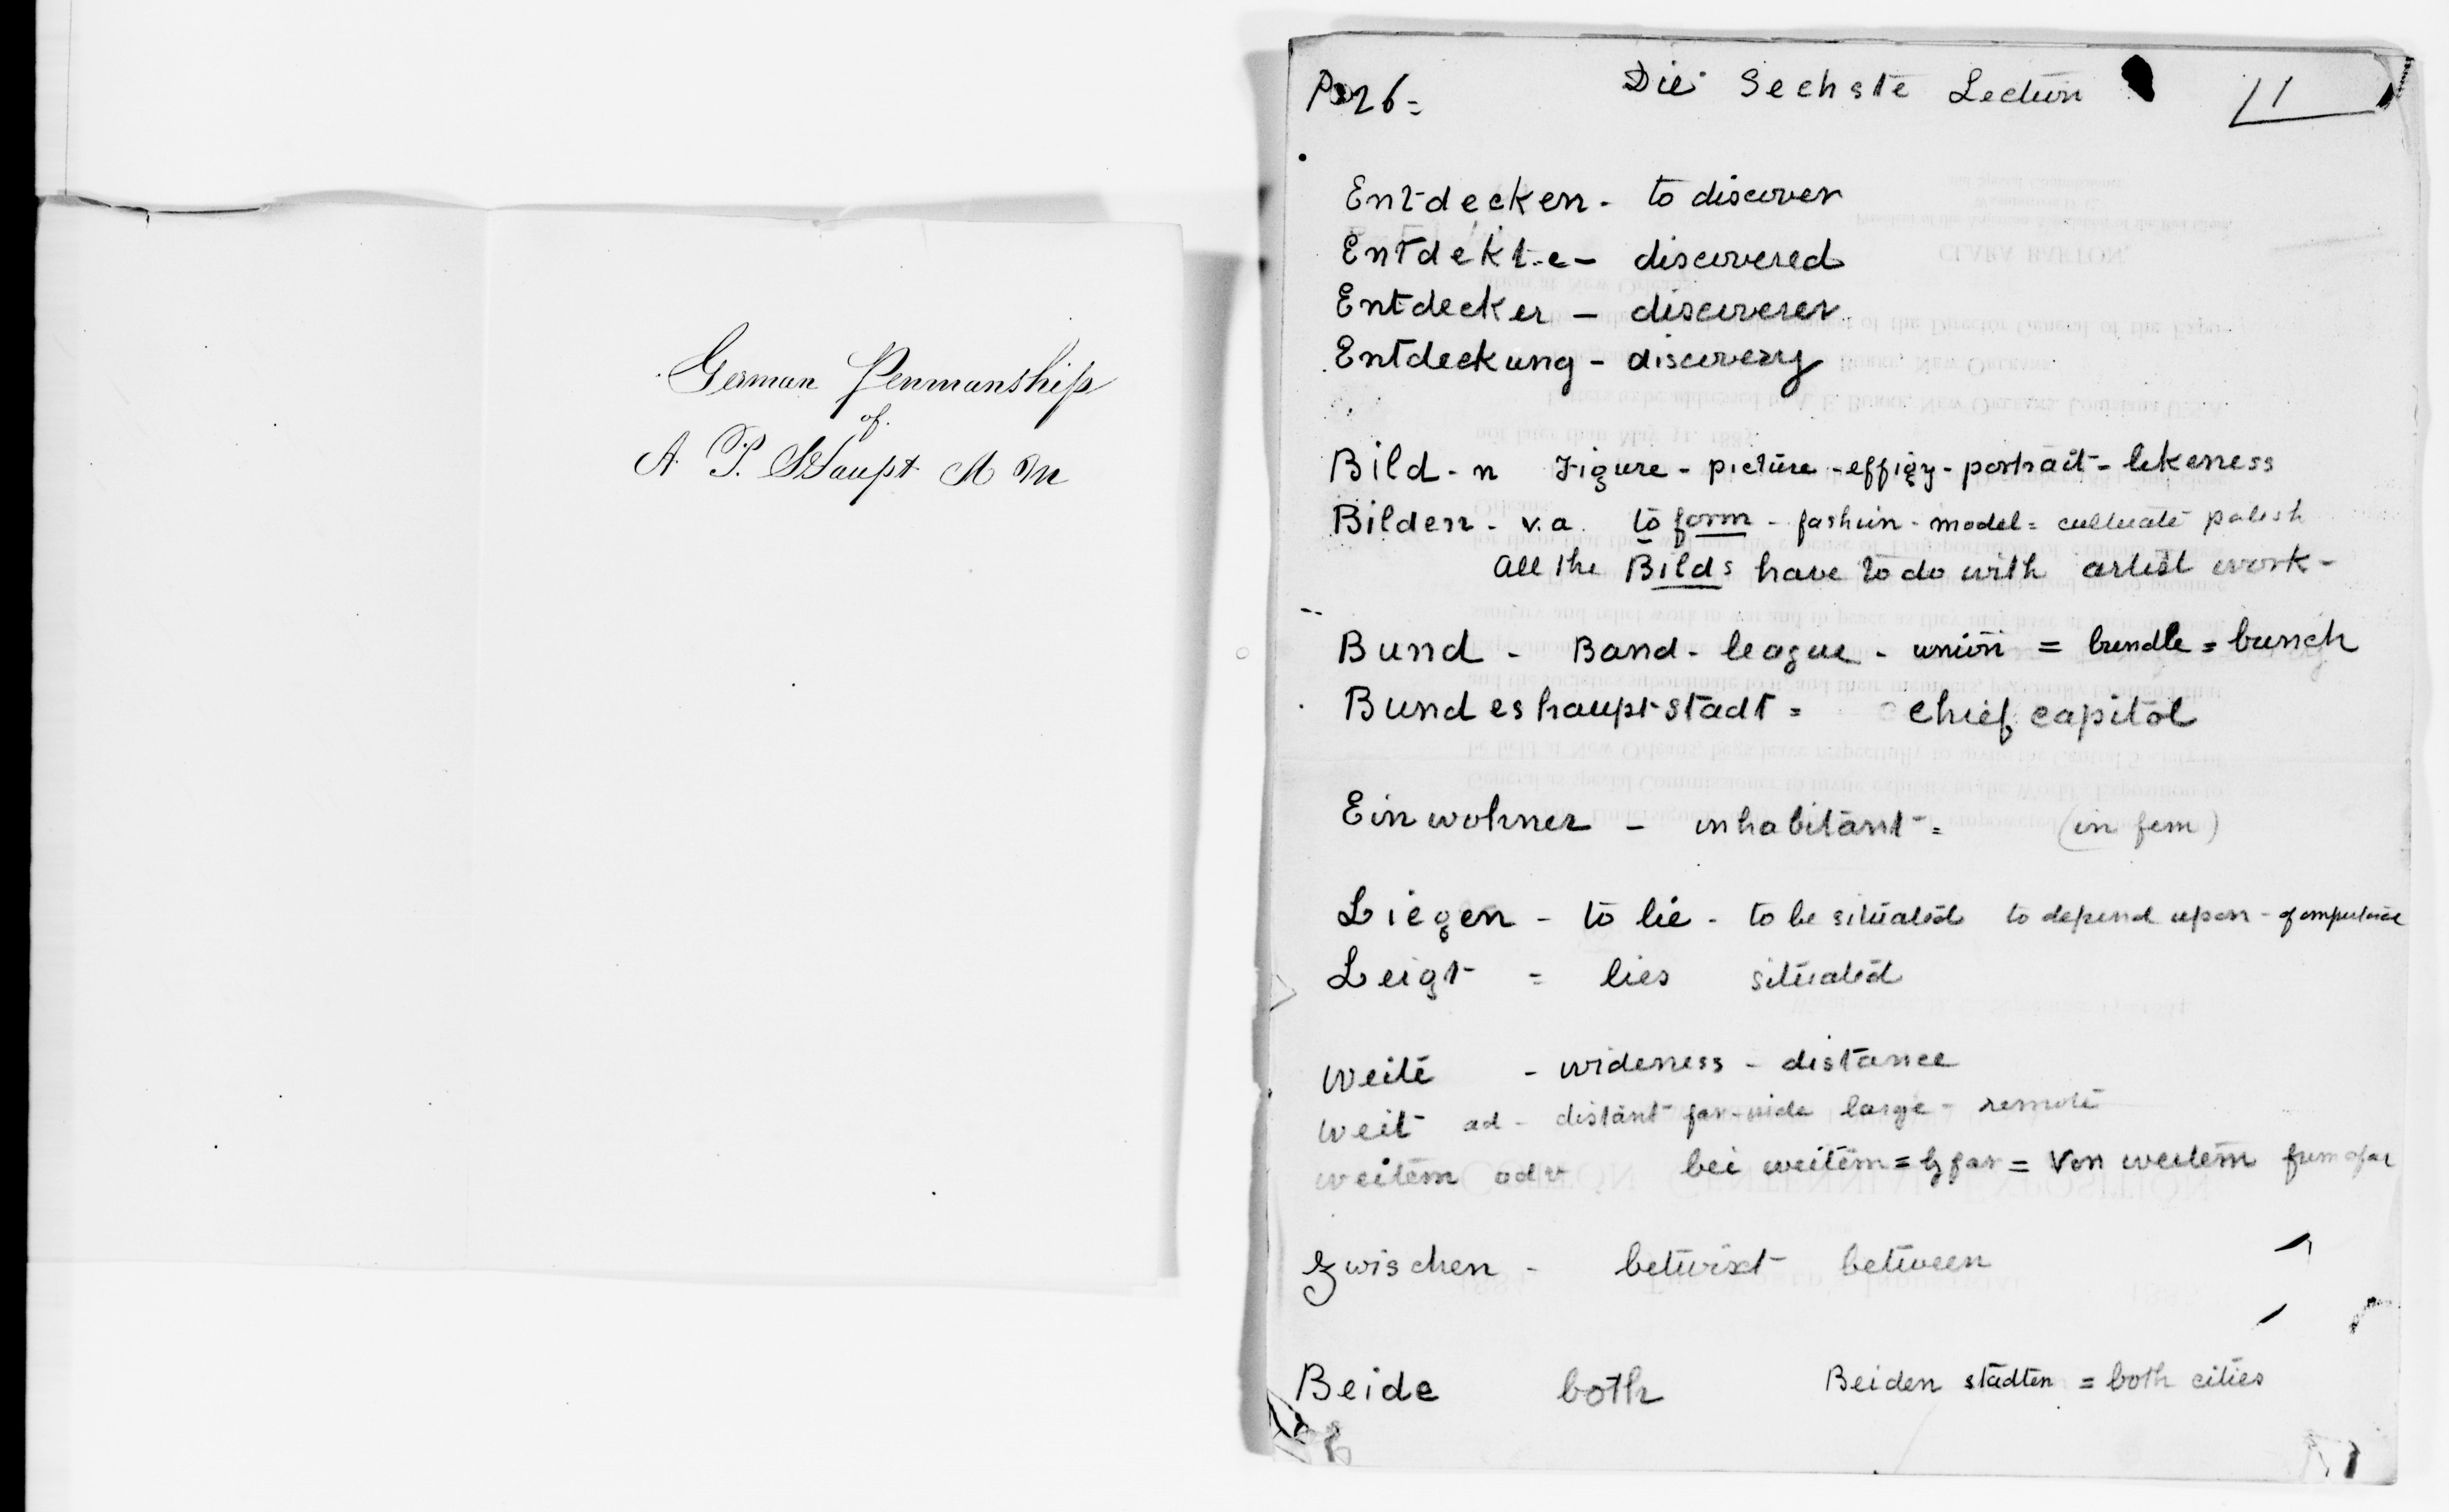 German Penmanship
of
A. P. Haupt
P 26 =
Die Sechste Lection
11
Entdecken - to discover
Entdekte - discovered
Entdecker - discoverer
Entdeckung - discovery
Bild - n Figure - picture - effigy - portrait - likeness
Bilden - v. a. to form - fashion - model = cultivate polish
All the Bilds have to do with artist work -
Bund - Band - league - union = bundle = bunch
Bundeshauptstadt = chief capitol
Einwohner - inhabitant = (in fem)
Liegen - to lie - to be situated to depend upon - of importance
Leigt = lies situated
Weite - wideness - distance
weit ad - distant far - wide large - remote
weitem adv bei weitem = by far = Von weitem from afar
Zwischen - betwixt between
Beide both Beiden stadten = both cities